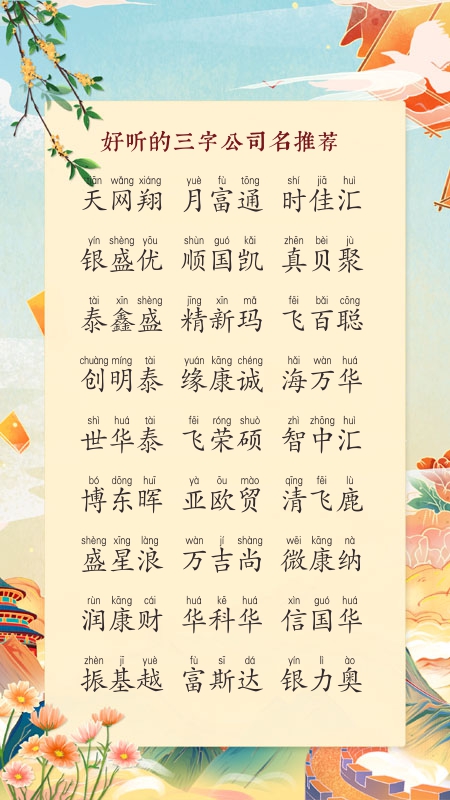 好听的三字公司名推荐
tiān wǎng xiáng yuè fù tōng shí jiā huì
天网翔 月富通 时佳汇
yín shèng yōu shùn guó kǎi zhēn bèi jù
银盛优 顺国凯 真贝聚
tài xīn shèng jīng xīn mǎ fēi bǎi cōng
泰鑫盛 精新玛 飞百聪
chuàng míng tài yuán kāng chéng hǎi wàn huá
创明泰 缘康诚 海万华
shì huá tài fēi róng shuò zhì zhōng huì
世华泰 飞荣硕 智中汇
bó dōng huī yà ōu mào qīng fēi lù
博东晖 亚欧贸 清飞鹿
shèng xīng làng wàn jí shàng wēi kāng nà
盛星浪 万吉尚 微康纳
rùn kāng cái huá kē huá xìn guó huá
润康财 华科华 信国华
zhèn jī yuè fù sī dá yín lì ào
振基越 富斯达 银力奥